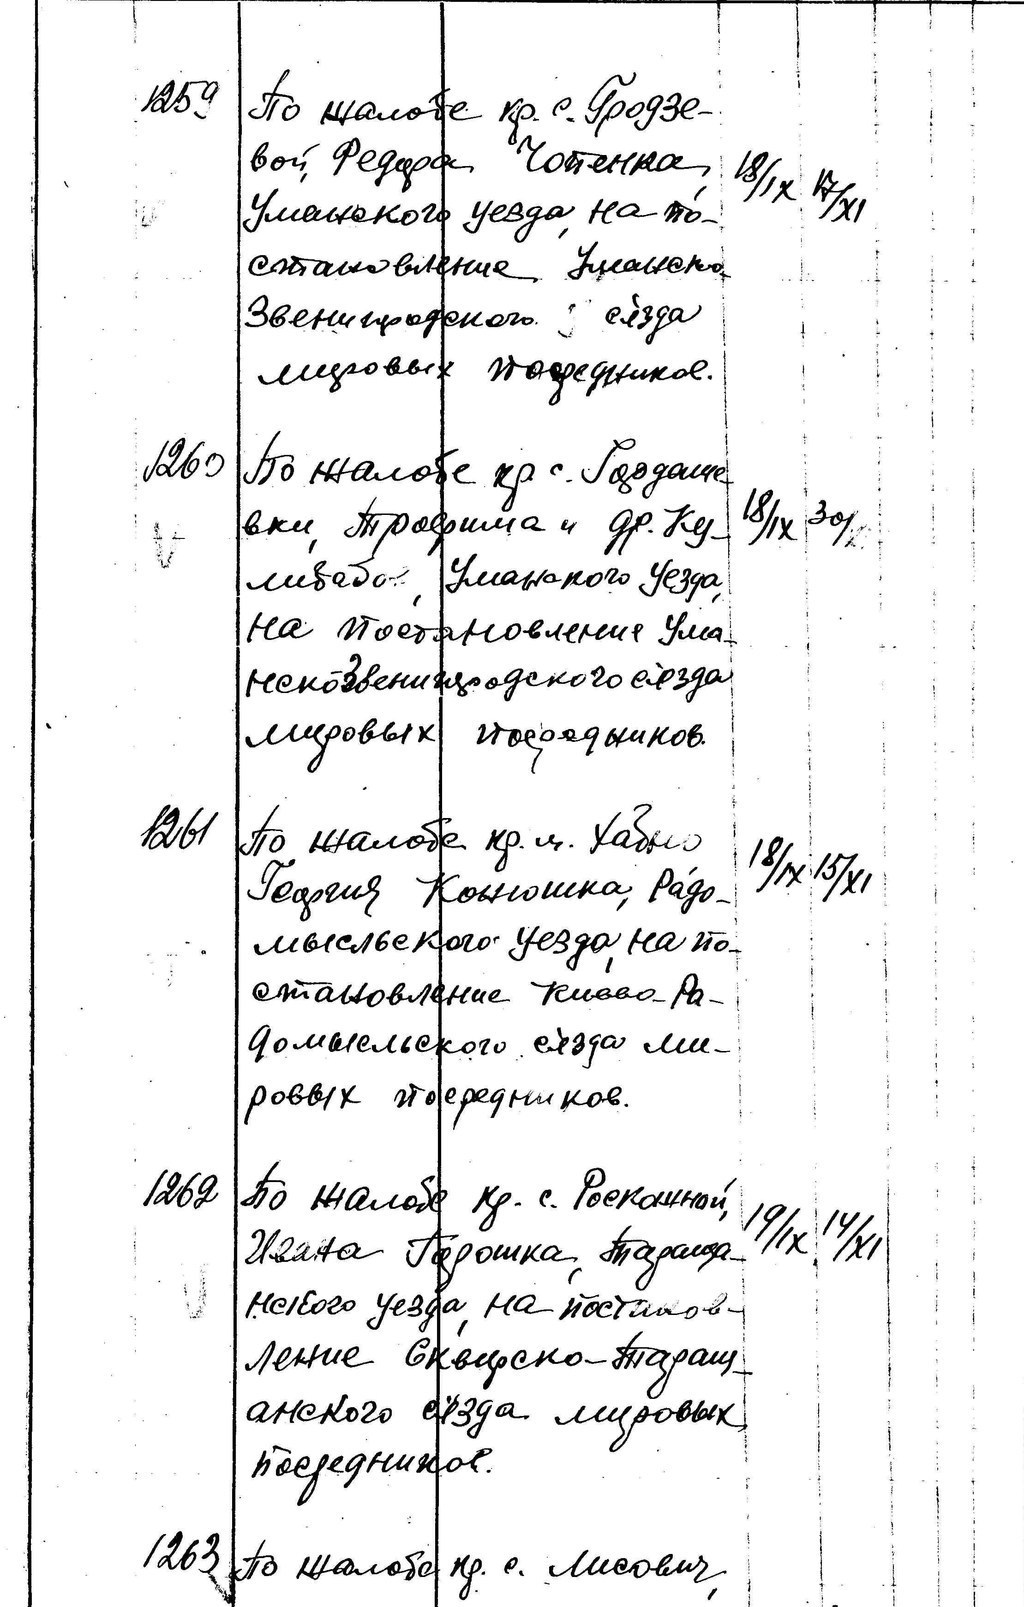 1259 По жалобе кр. с. Гродзе-
вой, Федора Чопенка,
Уманского уезда, на по-
становление Уманско-
Звенигородского съезда
мировых посредников.
18/IX 17/XI
1260 По жалобе кр. с. Гордаше
вки, Трофима и др. Ку-
Уманского уезда,
на постановление Ума-
нскоЗвенигородского съезда
мировых посредников.
18/IX 30/
1261 По жалобе кр. м. Хабно
Георгия Конюшка, Радо-
мысльского уезда, на по-
становление Киево-Ра-
домысльского съезда ми-
ровых посредников.
18/IX 15/XI
1262 По жалобе кр. с. Роскошной,
Ивана Горошка, Тараща-
нского уезда, на постанов-
ление Сквирско-Таращ-
анского съезда мировых
посредников.
19/IX 14/XI
1263 По жалобе кр. с. Лисович,